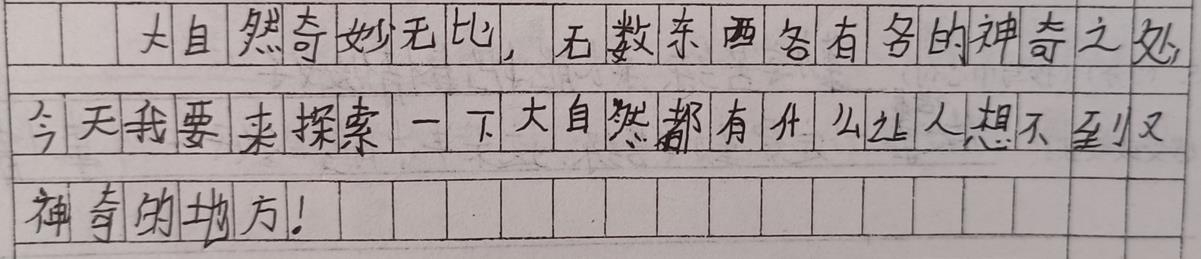 大自然奇妙无比，无数东西各有各的神奇之处，
今天我要来探索一下大自然都有什么让人想不到又
神奇的地方！